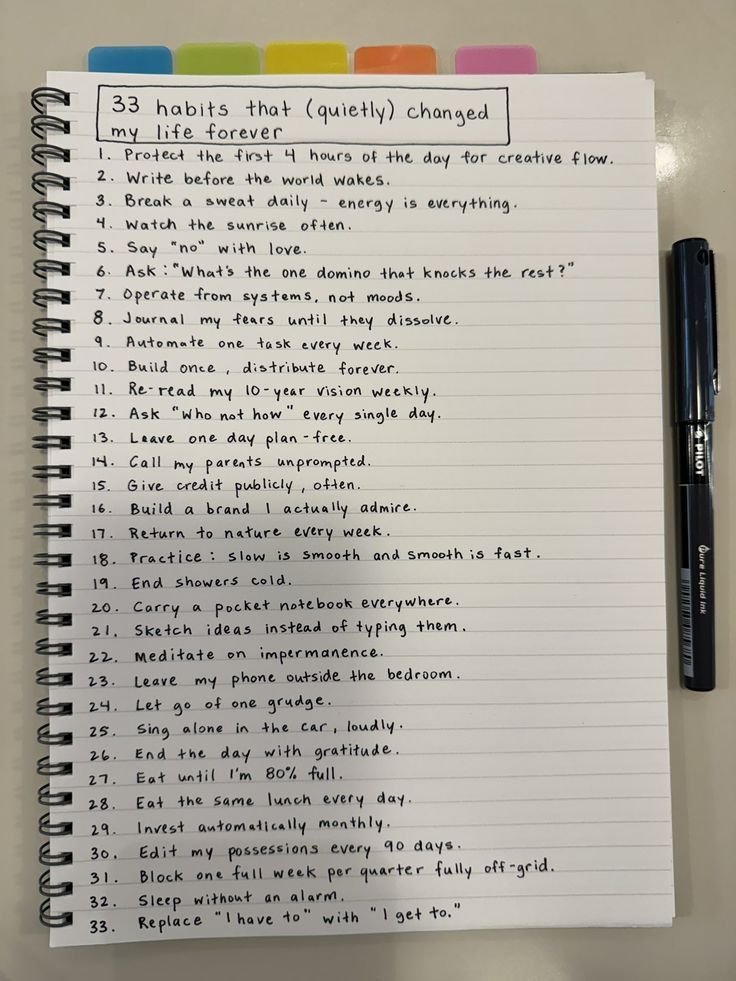 33 habits that (quietly) changed
my life forever
1. Protect the first 4 hours of the day for creative flow.
2. Write before the world wakes.
3. Break a sweat daily - energy is everything.
4. Watch the sunrise often.
5. Say "no" with love.
6. Ask: "What's the one domino that knocks the rest?"
7. Operate from systems, not moods.
8. Journal my fears until they dissolve.
9. Automate one task every week.
10. Build once, distribute forever.
11. Re-read my 10-year vision weekly.
12. Ask "Who not how" every single day.
13. Leave one day plan-free.
14. Call my parents unprompted.
15. Give credit publicly, often.
16. Build a brand I actually admire.
17. Return to nature every week.
18. Practice: slow is smooth and smooth is fast.
19. End showers cold.
20. Carry a pocket notebook everywhere.
21. Sketch ideas instead of typing them.
22. Meditate on impermanence.
23. Leave my phone outside the bedroom.
24. Let go of one grudge.
25. Sing alone in the car, loudly.
26. End the day with gratitude.
27. Eat until I'm 80% full.
28. Eat the same lunch every day.
29. Invest automatically monthly.
30. Edit my possessions every 90 days.
31. Block one full week per quarter fully off-grid.
32. Sleep without an alarm.
33. Replace "I have to" with "I get to."
PILOT
Pure Liquid Ink